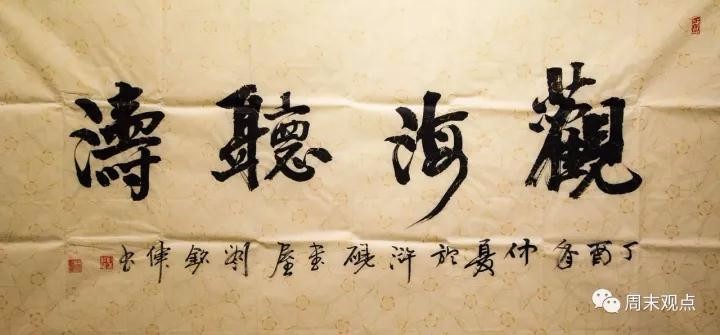 觀海聽濤
丁酉年仲夏於滸硯書屋劉欽偉書
周末观点